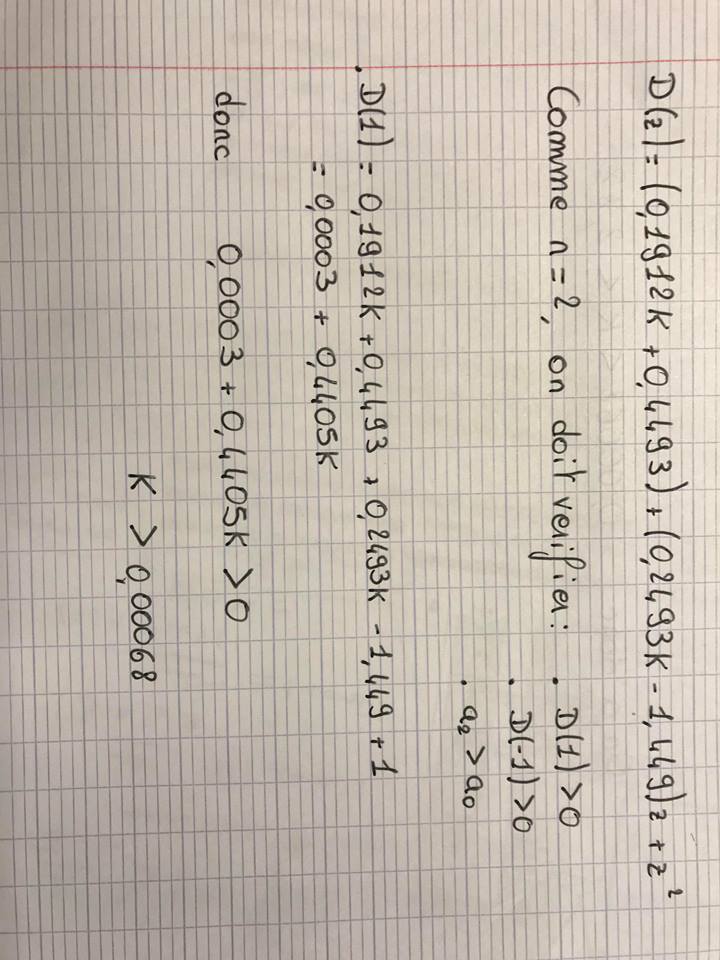 D(z) = (0,1912K + 0,4493) + (0,2493K - 1,449)z + z²
Comme n=2, on doit verifier: . D(1) >0
. D(-1) >0
. a₂ > a₀
. D(1) = 0,1912K + 0,4493 + 0,2493K - 1,449 + 1
= 0,0003 + 0,4405K
donc 0,0003 + 0,4405K >0
K > 0,00068